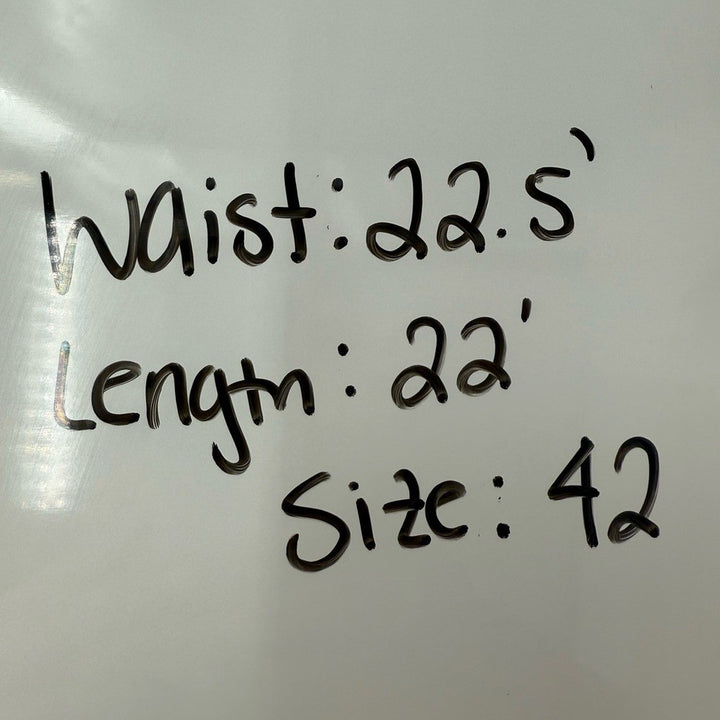 Waist: 22.5'
Length: 22'
Size: 42